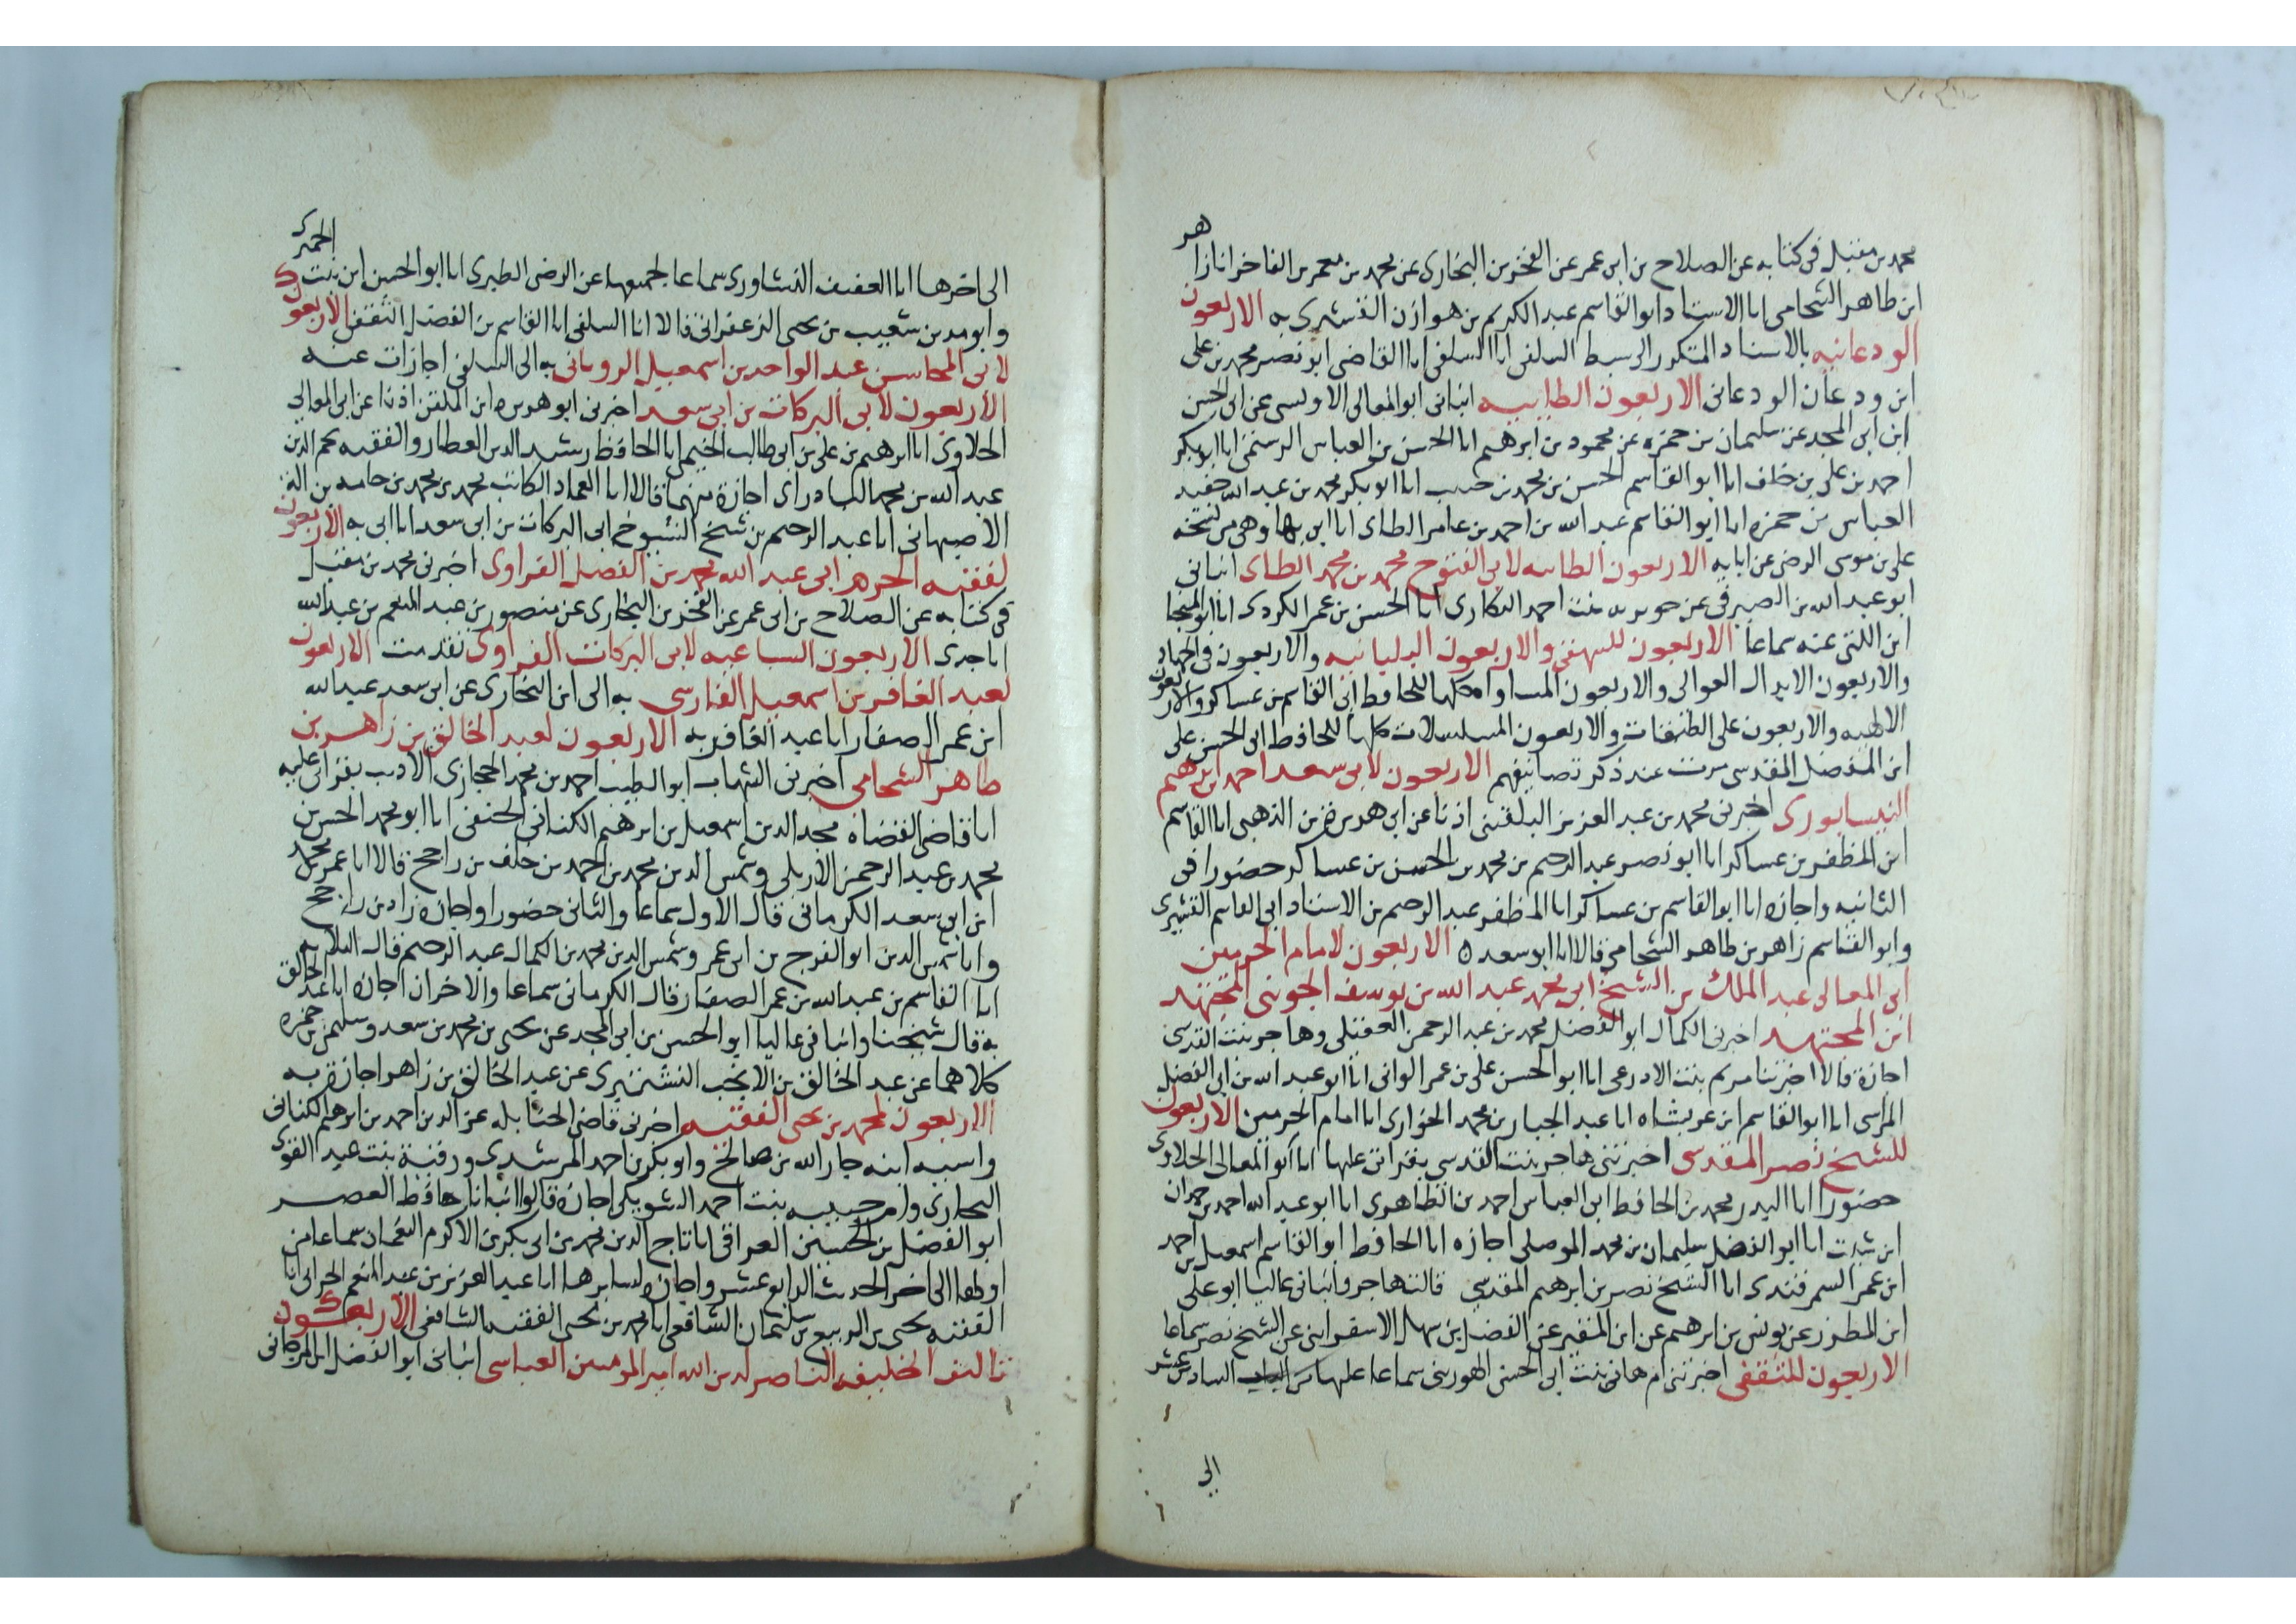 محمد بن مقبل فى كتابه عن الصلاح بن ابى عمر عن الفخر بن البخارى عن محمد بن معمر بن الفاخر انا زاهر
ابن طاهر الشحامى انا الاستاد ابو القاسم عبد الكريم بن هوازن القشيرى به الاربعون
الودعانيه بالاسناد المتكرر الى سبط السلفى انا السلفى انا القاضى ابو نصر محمد بن على
ابن ودعان الودعانى الاربعون الطايية انبانى ابو المعالى الاويسى عن ابى الحسن
ابن ابى المجد عن سليمان بن حمزه عن محمود بن ابرهيم انا الحسن بن العباس الرستمى انا ابو بكر
احمد بن على بن خلف انا ابو القاسم الحسن بن محمد بن حبيب انا ابو بكر محمد بن عبد الله حفيد
العباس بن حمزه انا ابو القاسم عبد الله بن احمد بن عامر الطاى انا ابى بها وهى من نسخة
على بن موسى الرضى عن ابايه الاربعون الطاىىه لابى الفتوح محمد بن محمد الطاى انبانى
ابو عبد الله بن الصيرفى عن جويريه بنت احمد الهكارى انا الحسن بن عمر الكردى انا ابو المنجا
ابن اللتى عنه سماعا الاربعون للبيهقى والاربعون البلدانيه والاربعون فى الجهاد
والاربعون الابدال العوالى والاربعون المساواه كلها للحافظ ابى القاسم بن عساكر والاربعون
الالهيه والاربعون على الطبقات والاربعون المسلسلات كلها للحافظ ابى الحسن على
ابن المفضل المقدسى مرت عند ذكر تصانيفهم الاربعون لابى سعد احمد بن ابرهيم
النيسابورى اخبرنى محمد بن عبد العزيز البلقينى اذنا عن ابى هريره بن الذهبى انا القاسم
ابن المظفر بن عساكر انا ابو نصر عبد الرحيم بن محمد بن الحسن بن عساكر حضورا فى
الثانيه واجازه انا ابو القاسم بن عساكر انا المظفر عبد الرحيم بن الاستاد ابى القاسم القشيرى
وابو القاسم زاهر بن طاهر الشحامى قالا انا ابو سعد ه الاربعون لامام الحرمين
ابى المعالى عبد الملك بن الشيخ ابى محمد عبد الله بن يوسف الجوينى المجتهد
ابن المجتهد اخبرنى الكمال ابو الفضل محمد بن عبد الرحمن العقيلى وهاجر بنت القدسى
اجازة قالا اخبرتنا مريم بنت الاذرعى انا ابو الحسن على بن عمر الوانى انا ابو عبد الله بن ابى الفضل
المرسى انا ابو القاسم ابن عربشاه انا عبد الجبار بن محمد الخوارى انا امام الحرمين الاربعون
للشيخ نصر المقدسى اخبرتنى هاجر بنت القدسى بقراتى عليها انا ابو المعالى الحلاوى
حضورا انا البدر محمد بن الحافظ ابى العباس احمد بن الظاهرى انا ابو عبد الله احمد بن حمدان
ابن شبيب انا ابو الفضل سليمان بن محمد الموصلى اجازه انا الحافظ ابو القاسم اسمعيل بن احمد
ابن عمر السمرقندى انا الشيخ نصر بن ابرهيم المقدسى قالت هاجر وانبانى عاليا ابو على
ابن المطرز عن يونس بن ابرهيم عن ابن المقير عن الفضل بن سهل الاسفراينى عن الشيخ نصر سماعا
الاربعون للثقفى اخبرتنى ام هانى بنت ابى الحسن الهورينى سماعا عليها من السادس عشر
الى
الى اخرها انا العفيف النشاورى سماعا لجميعها عن الرضى الطبرى انا ابو الحسن ابن بنت الجميزى
وابو مدين شعيب بن يحيى الزعفرانى قالا انا السلفى انا القاسم بن الفضل الثقفى الاربعون
لابى المحاسن عبد الواحد بن اسمعيل الرويانى به الى السلفى اجازات عنه
الاربعون لابى البركات بن ابى سعد اخبرنى ابو هريره ابن الملقن اذنا عن ابى المعالى
الحلاوى انا ابرهيم بن على بن ابى طالب الخيمى انا الحافظ رشيد الدين العطار والفقيه نجم الدين
عبد الله بن محمد البادراى اجازة منهما قالا انا العماد الكاتب محمد بن محمد بن حامد بن اله
الاصبهانى انا عبد الرحيم بن شيخ الشيوخ ابى البركات بن ابى سعد انا ابى به الاربعون
لفقيه الحرم ابى عبد الله محمد بن الفضل الفراوى اخبرنى محمد بن مقبل
فى كتابه عن الصلاح بن ابى عمر عن الفخر بن البخارى عن منصور بن عبد المنعم بن عبد الله
انا جدى الاربعون السباعيه لابى البركات الفراوى تقدمت الاربعون
لعبد الغافر بن اسمعيل الفارسى به الى ابن البخارى عن ابى سعد عبد الله
ابن عمر الصفار انا عبد الغافر به الاربعون لعبد الخالق بن زاهر بن
طاهر الشحامى اخبرنى الشهاب ابو الطيب احمد بن محمد الحجازى الاديب بقراتى عليه
انا قاضى القضاه مجد الدين اسمعيل بن ابرهيم الكنانى الحنفى انا ابو محمد الحسن بن
محمد بن عبد الرحمن الاربلى وشمس الدين محمد بن احمد بن خلف بن راجح قالا انا عمر بن محمد
ابن ابى سعد الكرمانى قال الاول سماعا والثانى حضورا واجازه زاد بن راجح
وانا شمس الدين ابو الفرج بن ابى عمر وشمس الدين محمد بن الكمال عبد الرحيم قال الثلاثه
انا القاسم بن عبد الله بن عمر الصفار قال الكرمانى سماعا والاخران اجازه انا عبد الخالق
به قال شيخنا وانبانى عاليا ابو الحسن بن ابى المجد عن يحيى بن محمد بن سعد وسليمن بن حمزه
كلاهما عن عبد الخالق بن الانجب النشتبرى عن عبد الخالق بن زاهر اجازة به
الاربعون لمحمد بن يحيى الفقيه اخبرنى قاضى الحنابله عز الدين احمد بن ابرهيم الكنانى
واسيه ابنة جار الله بن صالح وابو بكر بن احمد المرشدى ورقية بنت عبد القوى
البجاوى وام حبيبه بنت احمد الشويكى اجازة قالوا انبانا حافظ العصر
ابو الفضل بن الحسين العراقى انا تاج الدين محمد بن ابى بكر بن الاكرم النعمان سماعا من
اولها الى اخر الحديث الرابع عشر واجازه لسايرها انا عبد العزيز بن عبد المنعم الحرانى انا
الفقيه يحيى بن الربيع بن سليمان الشافعى انا محمد بن يحيى الفقيه الشافعى الاربعون
تاليف الخليفه الناصر لدين الله امير المومنين العباسى انبانى ابو الفضل بن المرجانى